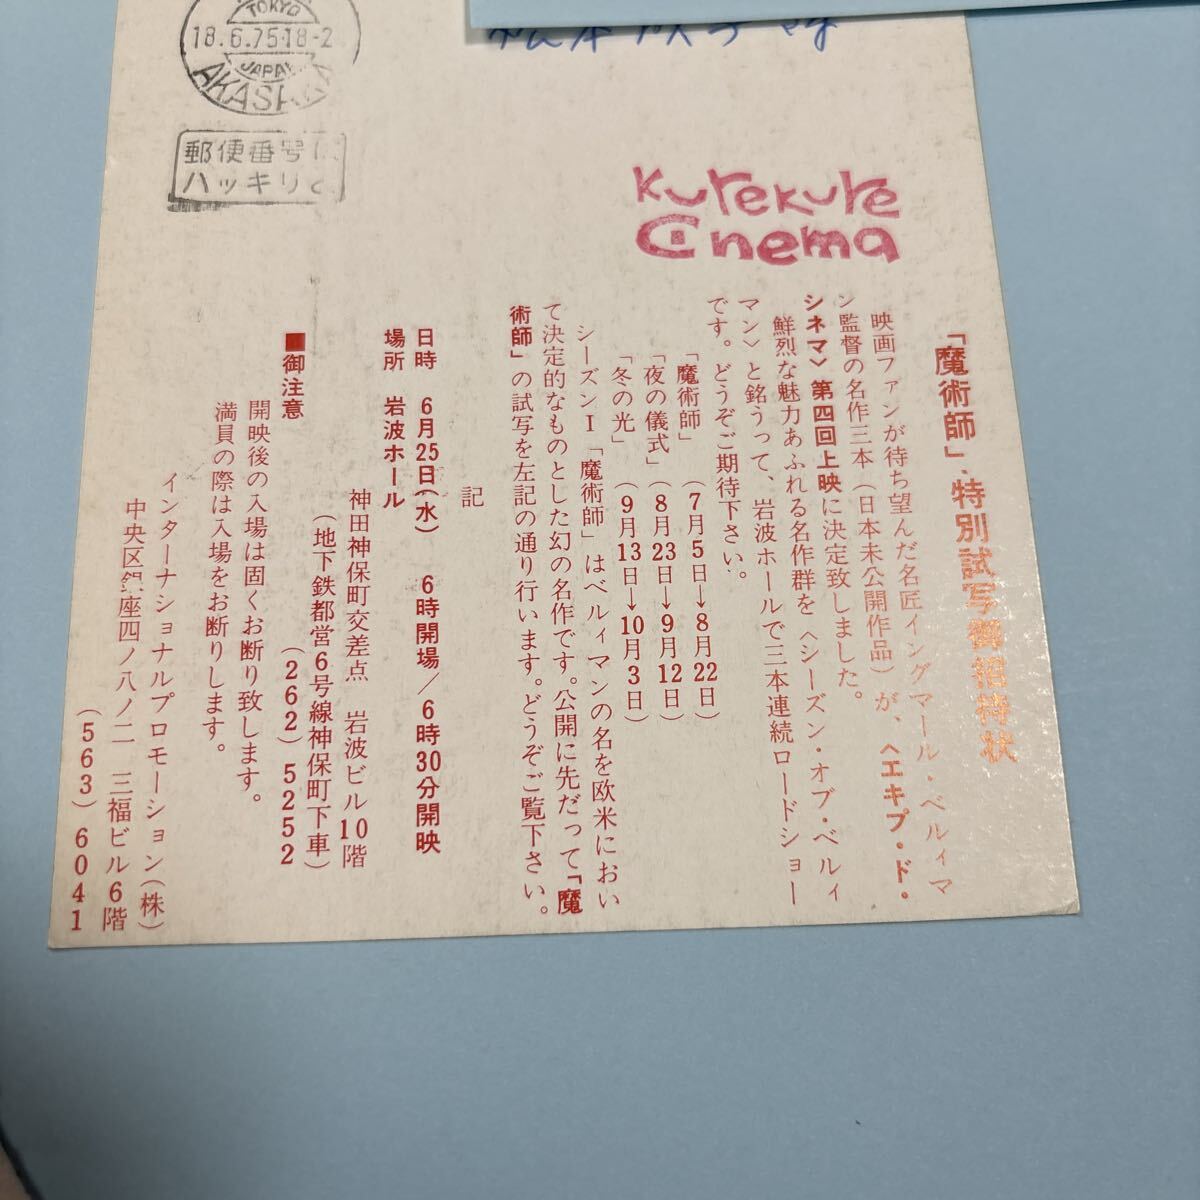 TOKYO
18.6.75.18-2
JAPAN
郵便番号
ハッキリ
KureKure
Cinema
「魔術師」・特別試写御招待状
映画ファンが待ち望んだ名匠イングマール・ベルィマ
ン監督の名作三本(日本未公開作品)が、〈エキプ・ド・
シネマ〉第四回上映に決定致しました。
鮮烈な魅力あふれる名作群を〈シーズン・オブ・ベルィ
マン〉と銘うって、岩波ホールで三本連続ロードショー
です。どうぞご期待下さい。
「魔術師」(7月5日→8月22日)
「夜の儀式」(8月23日→9月12日)
「冬の光」(9月13日→10月3日)
シーズンI「魔術師」はベルィマンの名を欧米におい
て決定的なものとした幻の名作です。公開に先だって「魔
術師」の試写を左記の通り行います。どうぞご覧下さい。
記
日時 6月25日(水) 6時開場/6時30分開映
場所 岩波ホール
神田神保町交差点 岩波ビル10階
(地下鉄都営6号線神保町下車)
(262)5252
■御注意
開映後の入場は固くお断り致します。
満員の際は入場をお断りします。
インターナショナルプロモーション(株)
中央区銀座四ノ八ノ二 三福ビル6階
(563)6041